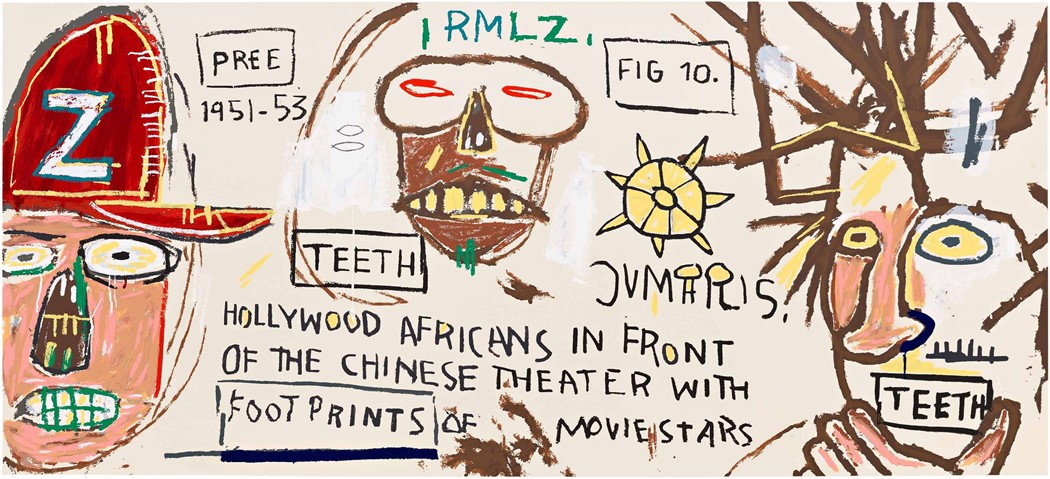 Z
PREE
1951-53
RMLZ.
FIG 10.
TEETH
JUMPIPIS.
HOLLYWOOD AFRICANS IN FRONT
OF THE CHINESE THEATER WITH
FOOTPRINTS OF MOVIE STARS
TEETH